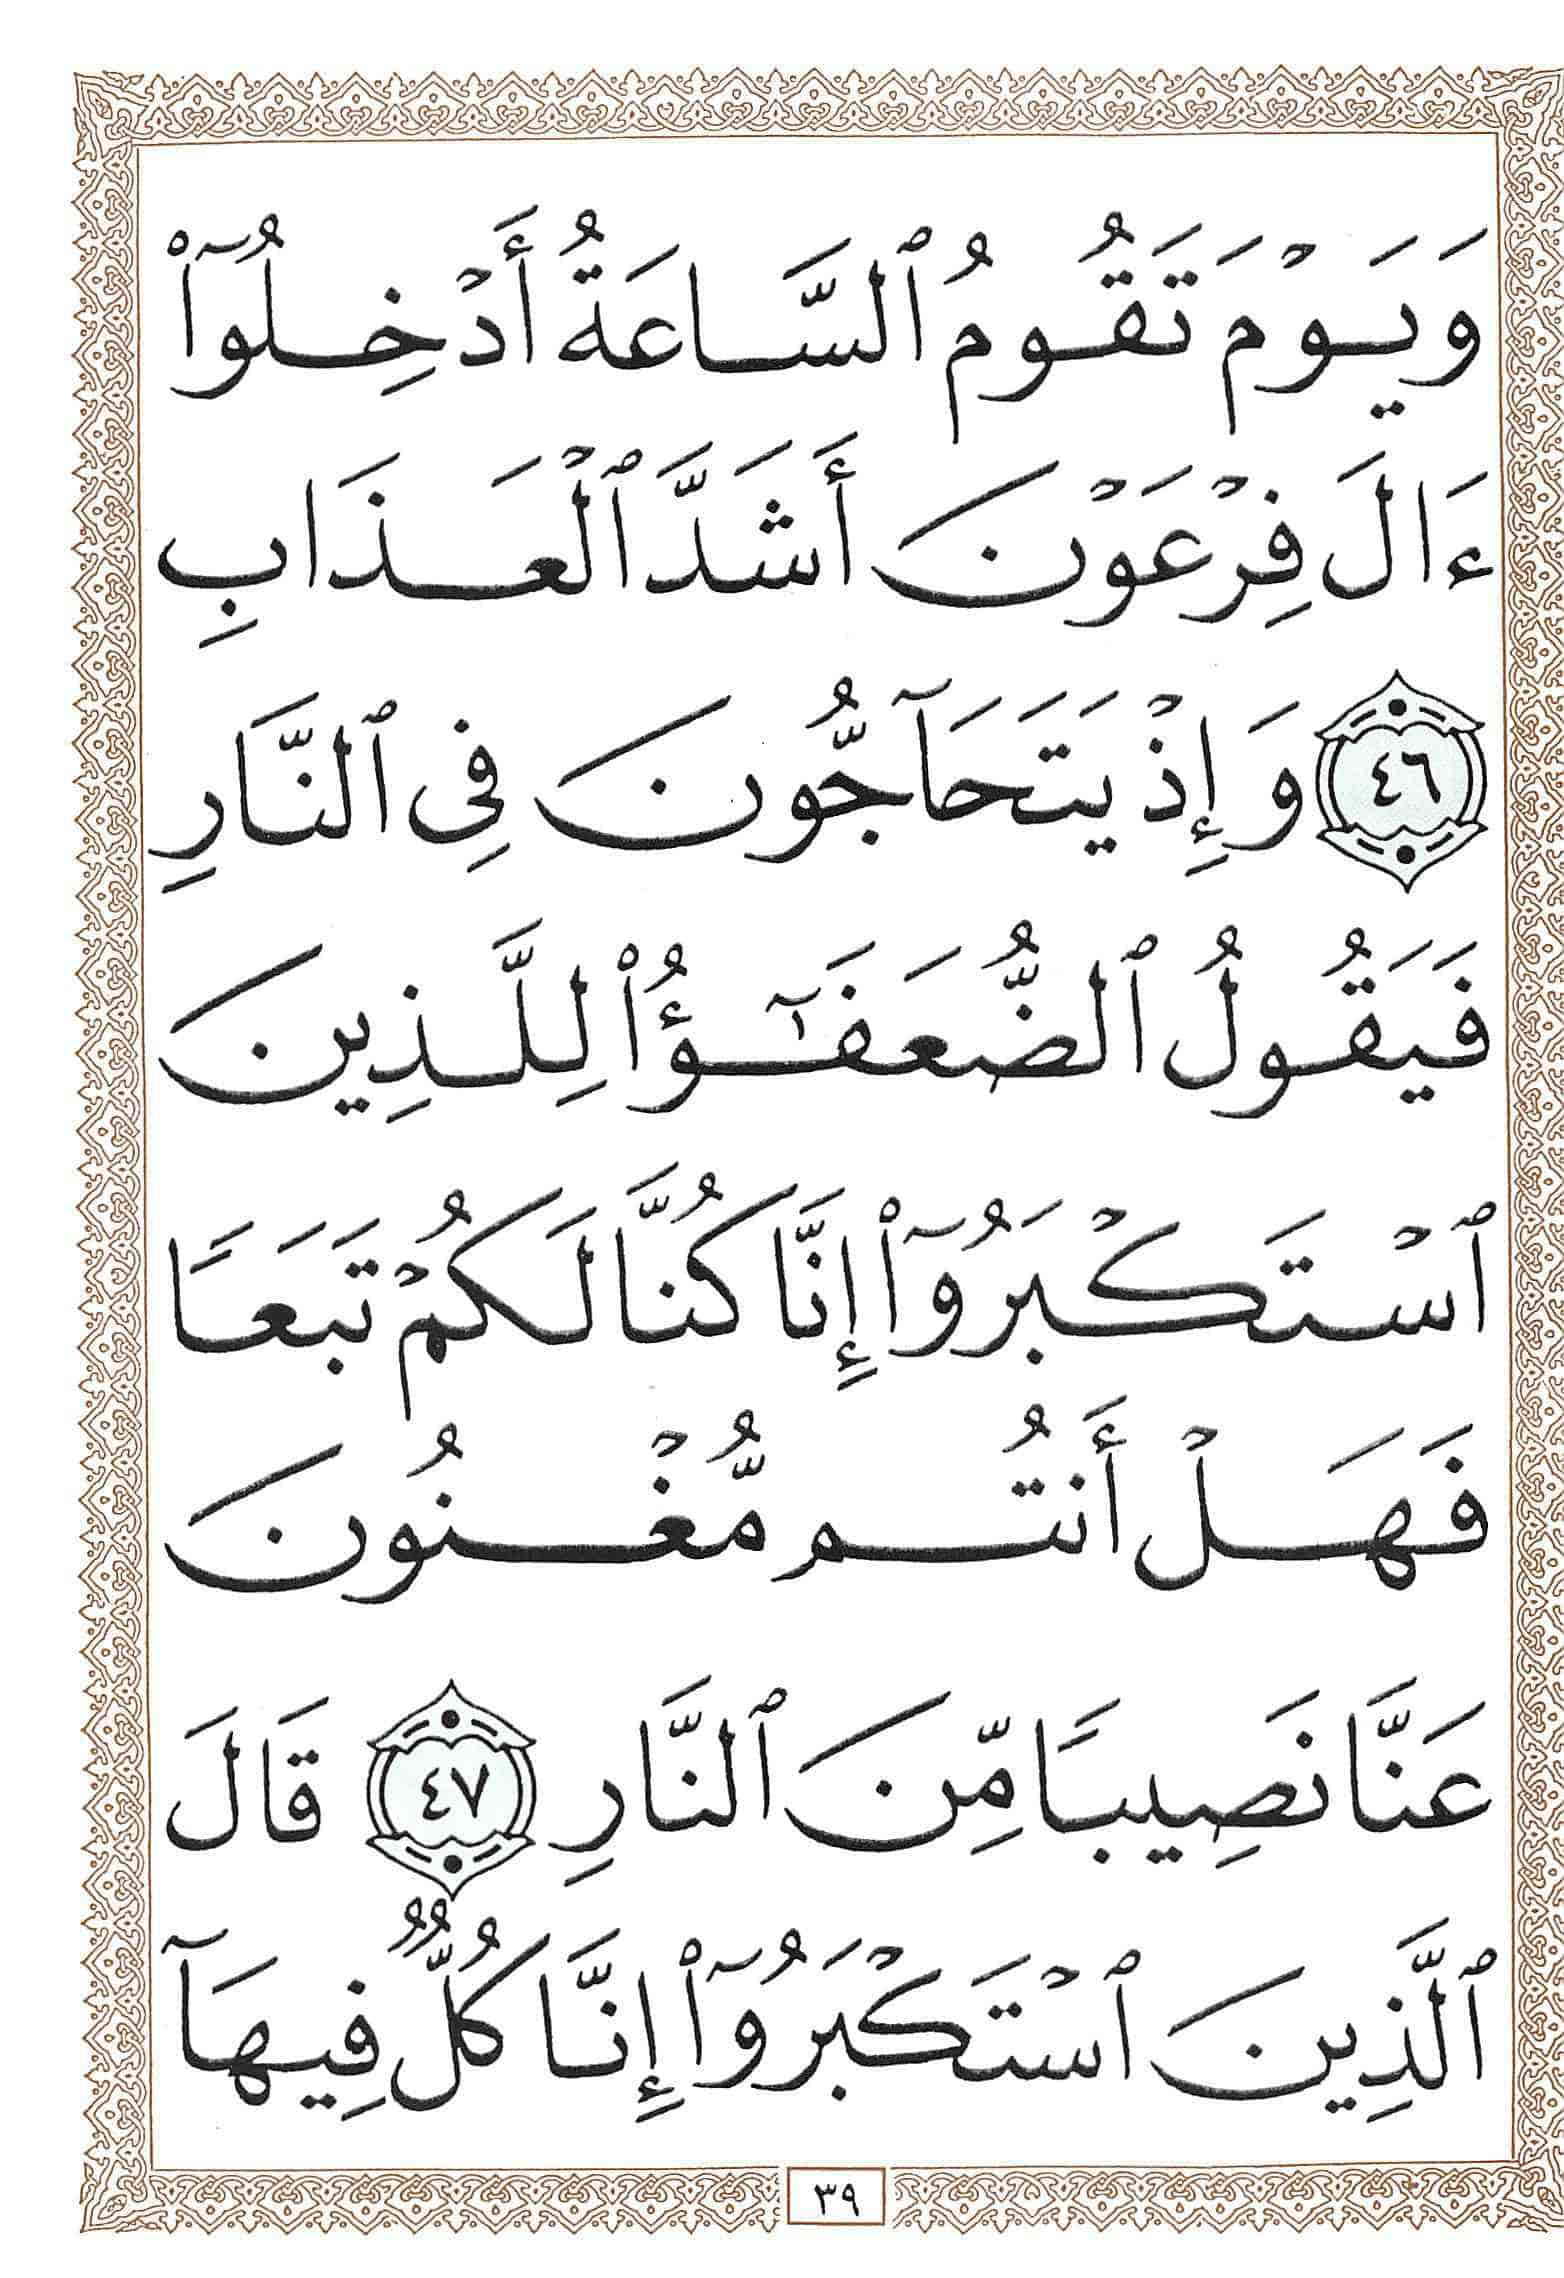 وَيَوْمَ تَقُومُ ٱلسَّاعَةُ أَدْخِلُوٓا۟
ءَالَ فِرْعَوْنَ أَشَدَّ ٱلْعَذَابِ
٤٦ وَإِذْ يَتَحَآجُّونَ فِى ٱلنَّارِ
فَيَقُولُ ٱلضُّعَفَـٰٓؤُا۟ لِلَّذِينَ
ٱسْتَكْبَرُوٓا۟ إِنَّا كُنَّا لَكُمْ تَبَعًا
فَهَلْ أَنتُم مُّغْنُونَ
عَنَّا نَصِيبًا مِّنَ ٱلنَّارِ ٤٧ قَالَ
ٱلَّذِينَ ٱسْتَكْبَرُوٓا۟ إِنَّا كُلٌّ فِيهَآ
٣٩